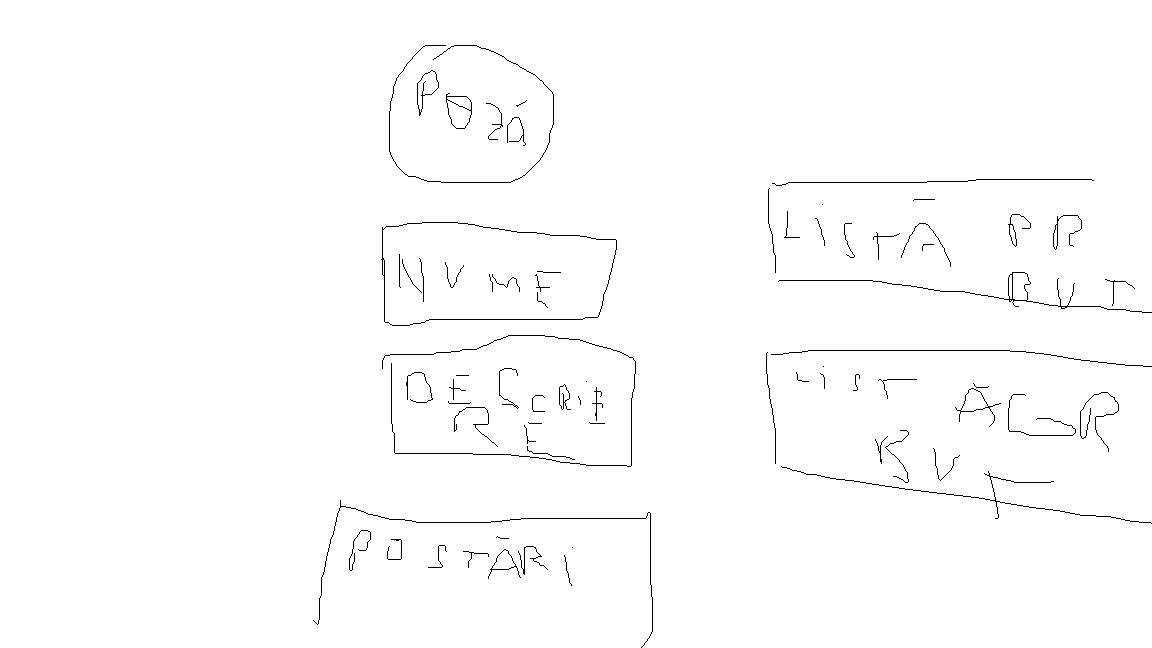 POZĂ
NUME
DESCRIE
RE
POSTĂRI
LISTĂ PR
BUT
LISTĂ GR
BUT